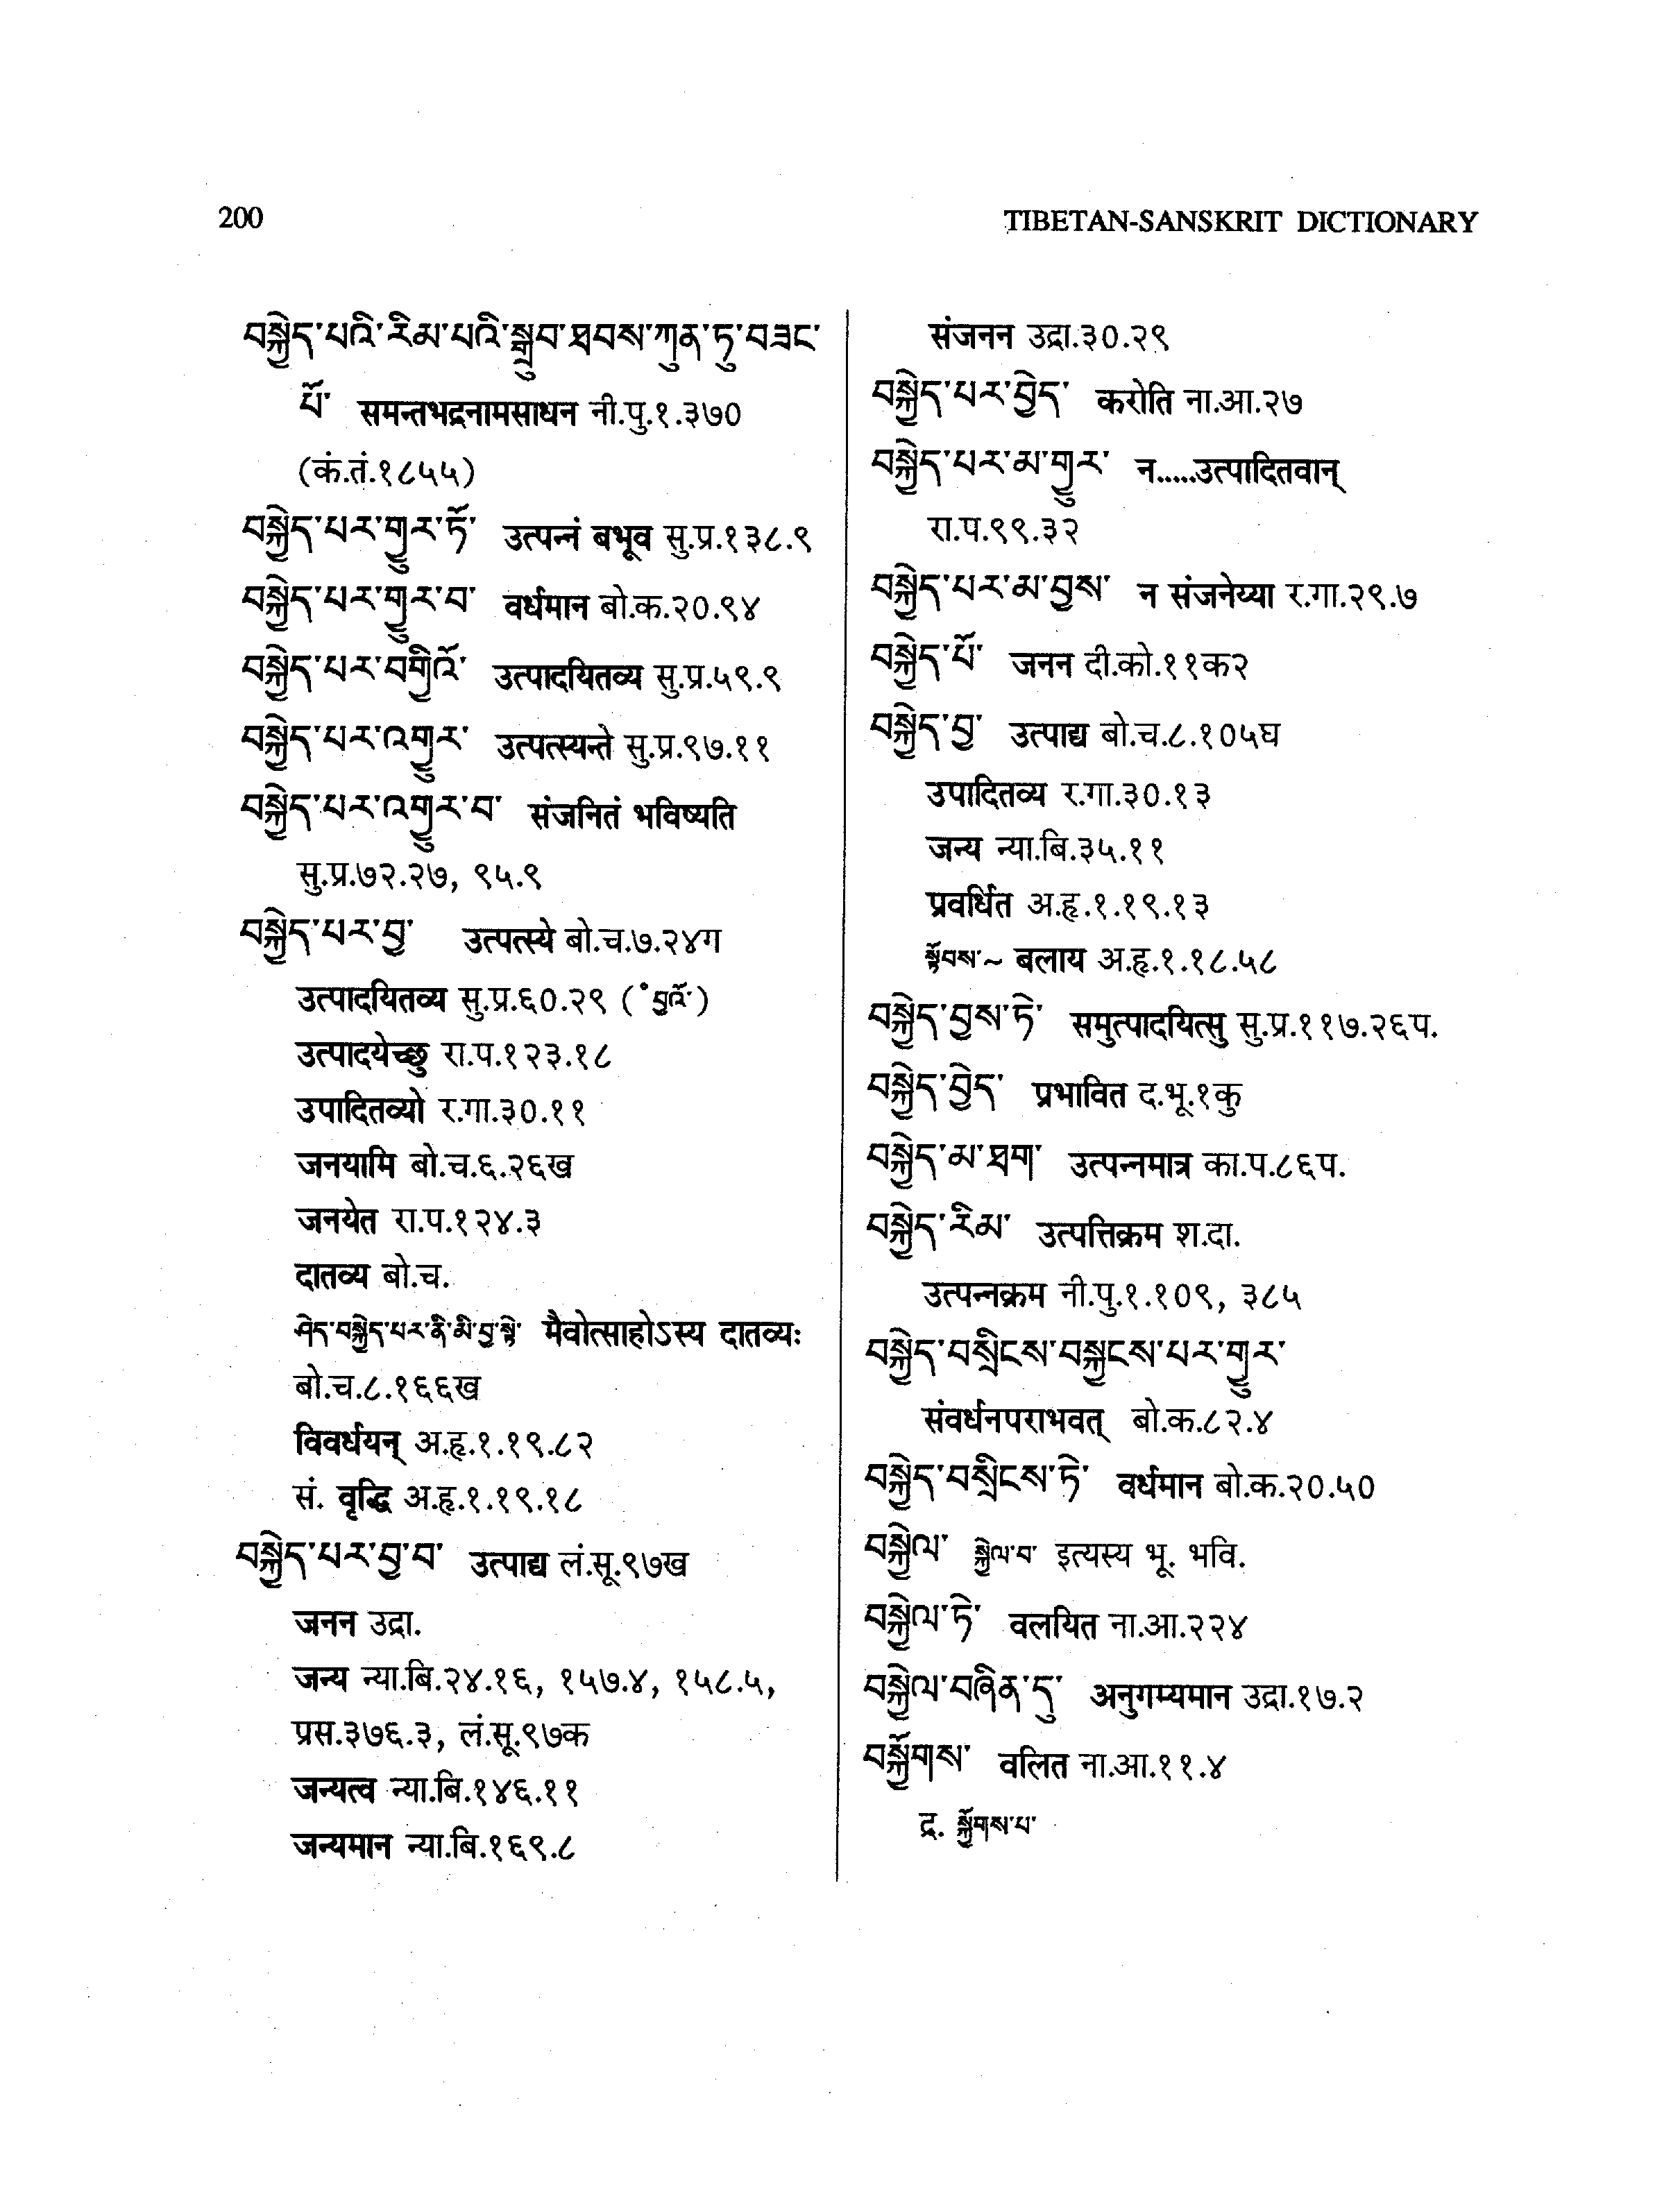 200
TIBETAN-SANSKRIT DICTIONARY
བསྐྱེད་པའི་རིམ་པའི་སྒྲུབ་ཐབས་ཀུན་ཏུ་བཟང་
པོ་ समन्तभद्रनामसाधन नी.पु.१.३७०
(कं.तं.१८५५)
བསྐྱེད་པར་གྱུར་ཏོ་ उत्पन्नं बभूव सु.प्र.१३८.९
བསྐྱེད་པར་གྱུར་བ་ वर्धमान बो.क.२०.९४
བསྐྱེད་པར་བགྱིའོ་ उत्पादयितव्य सु.प्र.५९.९
བསྐྱེད་པར་འགྱུར་ उत्पत्स्यन्ते सु.प्र.९७.११
བསྐྱེད་པར་འགྱུར་བ་ संजनितं भविष्यति
सु.प्र.७२.२७, ९५.९
བསྐྱེད་པར་བྱ་ उत्पत्स्ये बो.च.७.२४ग
उत्पादयितव्य सु.प्र.६०.२९ (˚བྱའོ་)
उत्पादयेच्छु रा.प.१२३.१८
उपादितव्यो र.गा.३०.११
जनयामि बो.च.६.२६ख
जनयेत रा.प.१२४.३
दातव्य बो.च.
ཤེད་བསྐྱེད་པར་ནི་མི་བྱ་སྟེ་ मैवोत्साहोऽस्य दातव्यः
बो.च.८.१६६ख
विवर्धयन् अ.हृ.१.१९.८२
सं. वृद्धि अ.हृ.१.१९.१८
བསྐྱེད་པར་བྱ་བ་ उत्पाद्य लं.सू.९७ख
जनन उद्रा.
जन्य न्या.बि.२४.१६, १५७.४, १५८.५,
प्रस.३७६.३, लं.सू.९७क
जन्यत्व न्या.बि.१४६.११
जन्यमान न्या.बि.१६९.८
संजनन उद्रा.३०.२९
བསྐྱེད་པར་བྱེད་ करोति ना.आ.२७
བསྐྱེད་པར་མ་གྱུར་ न.....उत्पादितवान्
रा.प.९९.३२
བསྐྱེད་པར་མ་བྱས་ न संजनेय्या र.गा.२९.७
བསྐྱེད་པོ་ जनन दी.को.११क२
བསྐྱེད་བྱ་ उत्पाद्य बो.च.८.१०५घ
उपादितव्य र.गा.३०.१३
जन्य न्या.बि.३५.११
प्रवर्धित अ.हृ.१.१९.१३
སྟོབས་~ बलाय अ.हृ.१.१८.५८
བསྐྱེད་བྱས་ཏེ་ समुत्पादयित्सु सु.प्र.११७.२६प.
བསྐྱེད་བྱེད་ प्रभावित द.भू.१कु
བསྐྱེད་མ་ཐག་ उत्पन्नमात्र का.प.८६प.
བསྐྱེད་རིམ་ उत्पत्तिक्रम श.दा.
उत्पन्नक्रम नी.पु.१.१०९, ३८५
བསྐྱེད་བསྲིངས་བསྐྱངས་པར་གྱུར་
संवर्धनपराभवत् बो.क.८२.४
བསྐྱེད་བསྲིངས་ཏེ་ वर्धमान बो.क.२०.५०
བསྐྱེལ་ སྐྱེལ་བ་ इत्यस्य भू. भवि.
བསྐྱེལ་ཏེ་ वलयित ना.आ.२२४
བསྐྱེལ་བཞིན་དུ་ अनुगम्यमान उद्रा.१७.२
བསྐྱོགས་ वलित ना.आ.११.४
द्र. སྐྱོགས་པ་